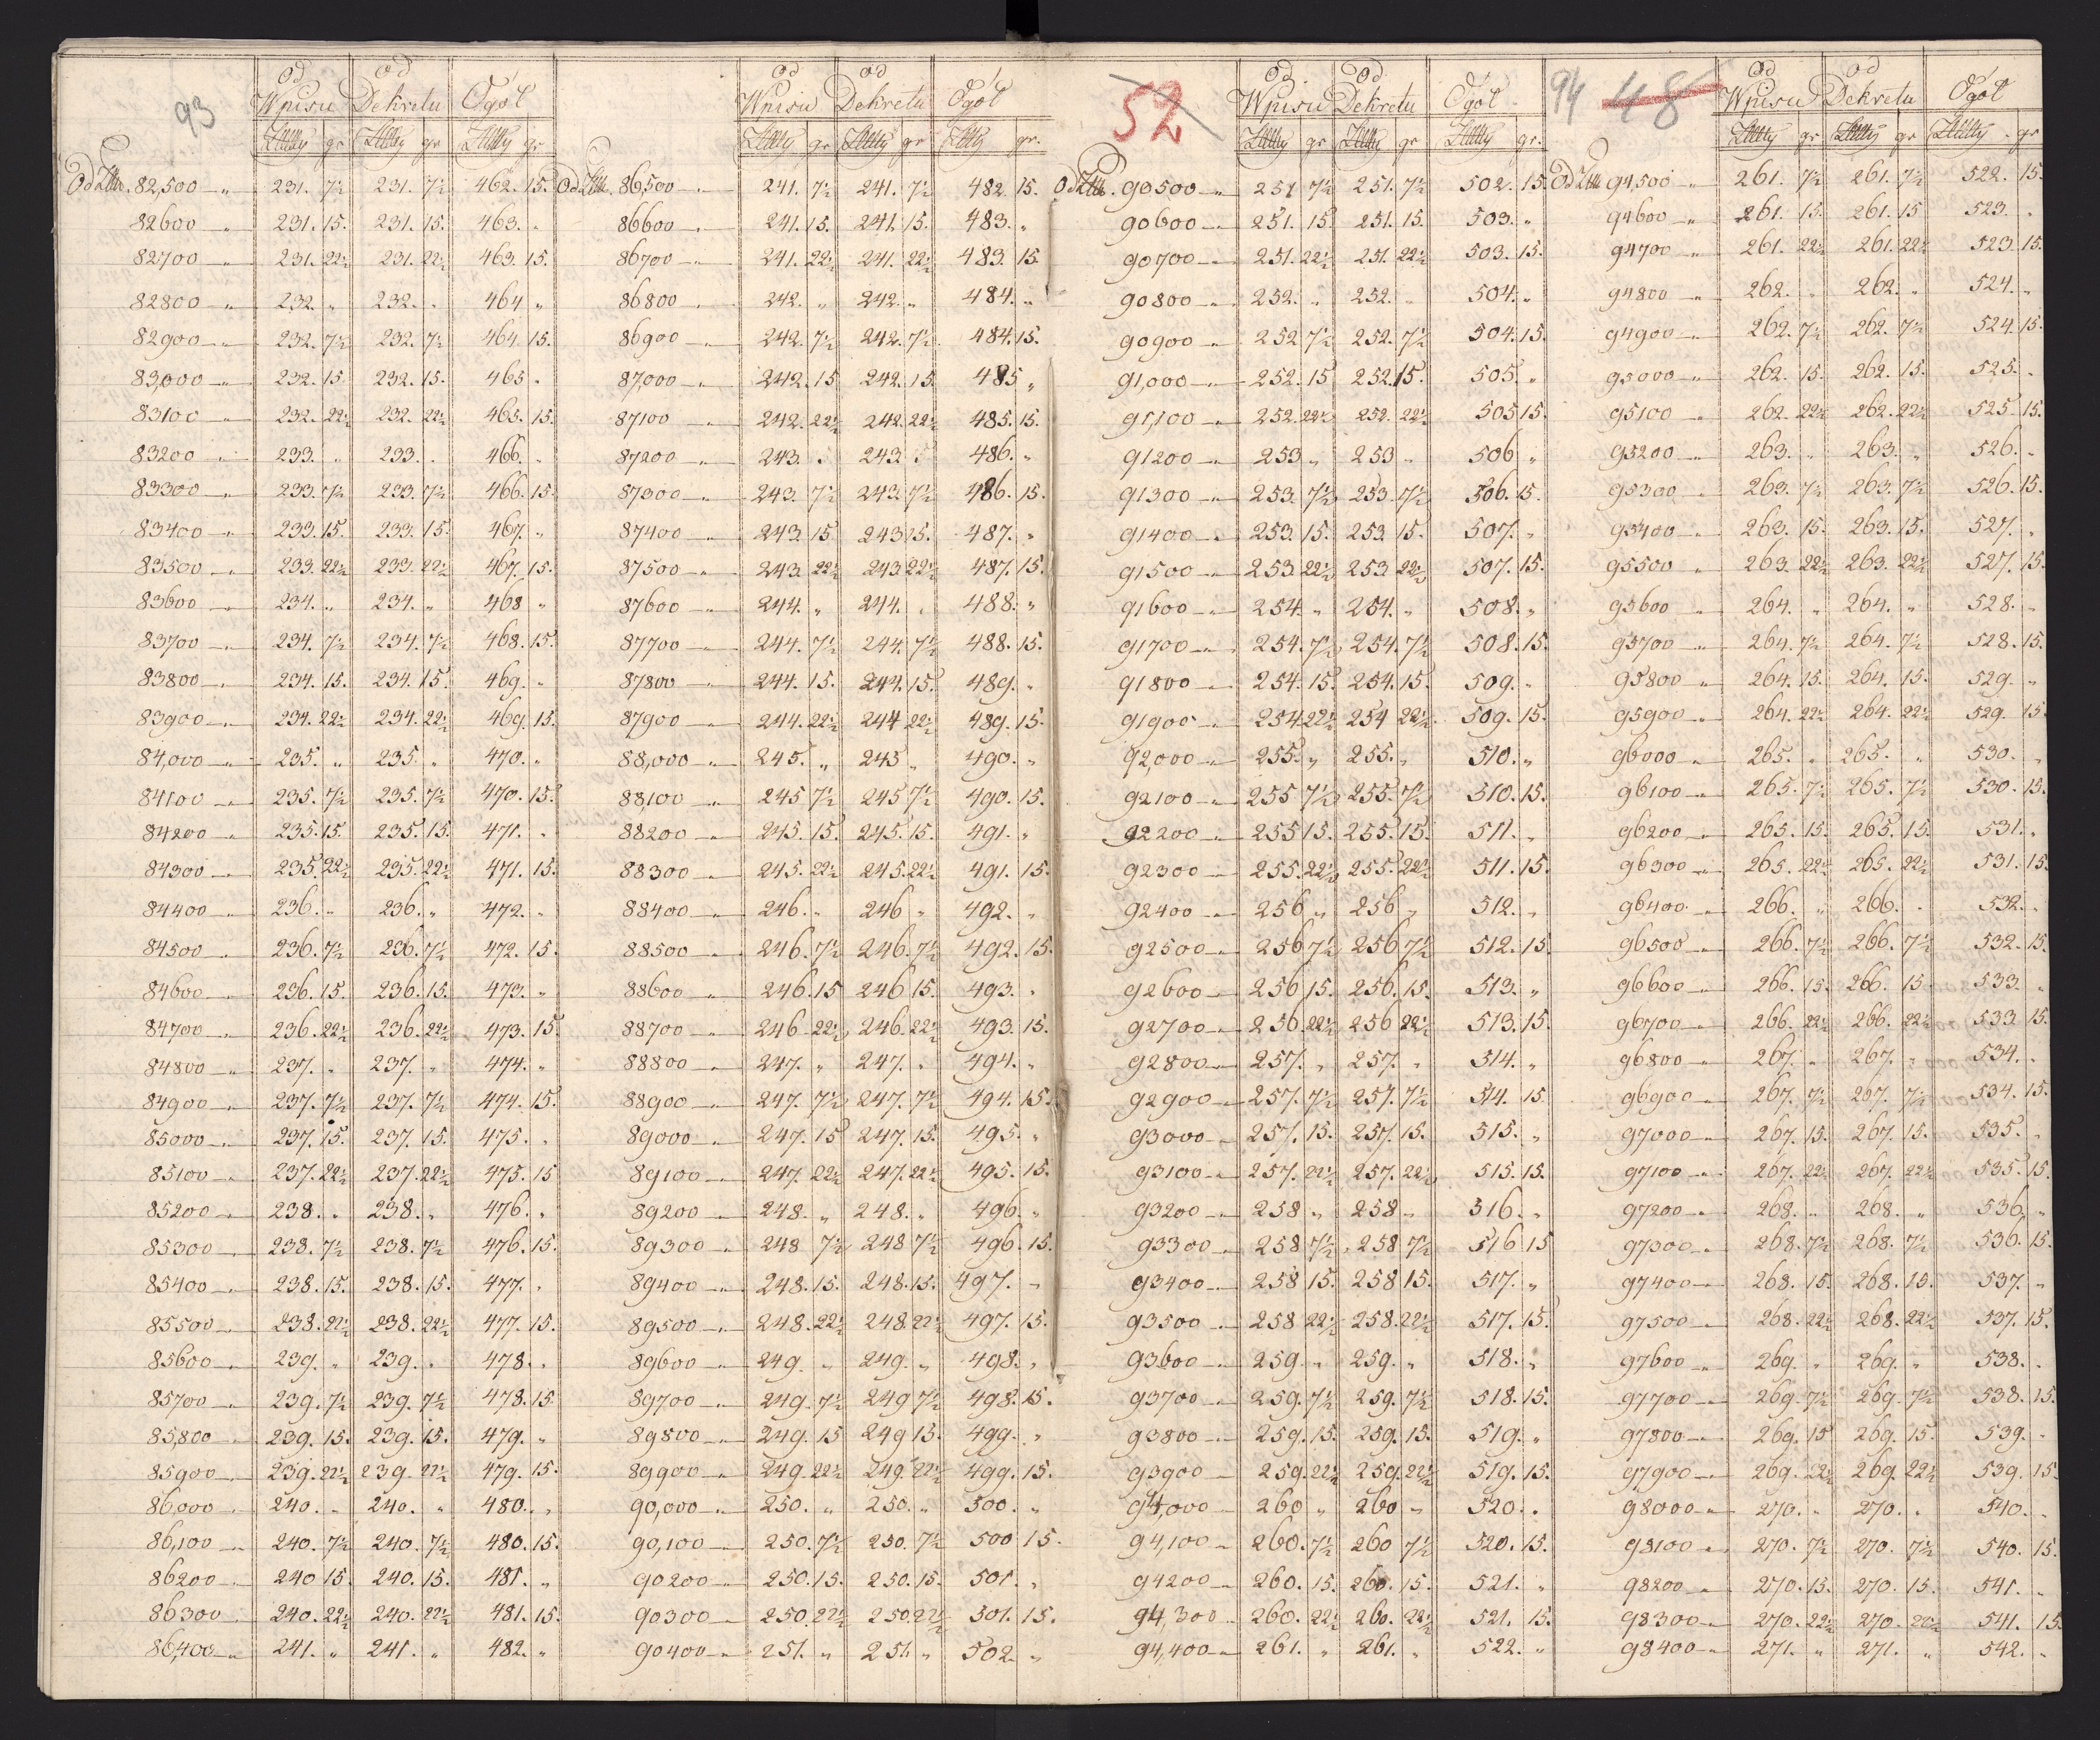 93
Od Od
Wpisu Dekretu Ogół
Złłty gr Złłty gr Złłty gr
Od Złłt. 82,500 — „ 231. 7½ 231. 7½ 462. 15.
82600 — „ 231. 15. 231. 15. 463. „
82700 — „ 231. 22½ 231. 22½ 463. 15.
82800 — „ 232. „ 232. „ 464. „
82900 — „ 232. 7½ 232. 7½ 464. 15.
83,000 — „ 232. 15. 232. 15. 465. „
83100 — „ 232. 22½ 232. 22½ 465. 15.
83200 — „ 233. „ 233. „ 466. „
83300 — „ 233. 7½ 233. 7½ 466. 15.
83400 — „ 233. 15. 233. 15. 467. „
83500 — „ 233. 22½ 233. 22½ 467. 15.
83600 — „ 234. „ 234. „ 468 „
83700 — „ 234. 7½ 234. 7½ 468. 15.
83800 — „ 234. 15. 234. 15. 469. „
83900 — „ 234. 22½ 234. 22½ 469. 15.
84,000 — „ 235. „ 235. „ 470. „
84100 — „ 235. 7½ 235. 7½ 470. 15.
84200 — „ 235. 15. 235. 15. 471. „
84300 — „ 235. 22½ 235. 22½ 471. 15.
84400 — „ 236. „ 236. „ 472. „
84500 — „ 236. 7½ 236. 7½ 472. 15.
84600 — „ 236. 15. 236. 15. 473. „
84700 — „ 236. 22½ 236. 22½ 473. 15.
84800 — „ 237. „ 237. „ 474. „
84900 — „ 237. 7½ 237. 7½ 474. 15.
85000 — „ 237. 15. 237. 15. 475. „
85100 — „ 237. 22½ 237. 22½ 475. 15
85200 — „ 238. „ 238. „ 476. „
85300 — „ 238. 7½ 238. 7½ 476. 15.
85400 — „ 238. 15. 238. 15. 477. „
85500 — „ 238. 22½ 238. 22½ 477. 15.
85600 — „ 239. „ 239. „ 478. „
85700 — „ 239. 7½ 239. 7½ 478. 15.
85,800 — „ 239. 15. 239. 15. 479. „
85900 — „ 239. 22½ 239. 22½ 479. 15.
86,000 — „ 240. „ 240. „ 480. „
86,100 — „ 240. 7½ 240. 7½ 480. 15.
86200 — „ 240 15. 240. 15. 481. „
86300 „ 240. 22½ 240. 22½ 481. 15.
86,400 — „ 241. „ 241. „ 482. „
Od Od
Wpisu Dekretu Ogół
Złłty gr Złłty gr Złłty gr.
Od Złłt. 86,500 — „ 241. 7½ 241. 7½ 482. 15.
86600 — „ 241. 15. 241. 15. 483. „
86700 — „ 241. 22½ 241. 22½ 483. 15.
86800 — „ 242. „ 242. „ 484. „
86900 — „ 242. 7½ 242. 7½ 484. 15.
87,000 — „ 242. 15 242. 15. 485 „
87100 — „ 242. 22½ 242. 22½ 485. 15.
87200 — „ 243. „ 243 „ 486. „
87300 — „ 243. 7½ 243. 7½ 486. 15.
87400 — „ 243. 15. 243 15. 487. „
87500 — „ 243. 22½ 243. 22½ 487. 15.
87600 — „ 244. „ 244. „ 488. „
87700 — „ 244. 7½ 244. 7½ 488. 15.
87800 — „ 244. 15. 244. 15. 489. „
87900 — „ 244. 22½ 244 22½ 489. 15.
88,000 — „ 245. „ 245 „ 490. „
88100 — „ 245 7½ 245 7½ 490. 15.
88200 — „ 245. 15. 245. 15. 491. „
88300 — „ 245. 22½ 245. 22½ 491. 15.
88400 — „ 246. „ 246 „ 492. „
88500 — „ 246. 7½ 246. 7½ 492. 15.
88600 — „ 246. 15 246 15. 493. „
88700 — „ 246 22½ 246. 22½ 493. 15.
88800 — „ 247. „ 247. „ 494. „
88900 — „ 247. 7½ 247. 7½ 494. 15.
89000 — „ 247. 15 247. 15. 495. „
89100 — „ 247. 22½ 247. 22½ 495. 15.
89200 — „ 248. „ 248. „ 496. „
89300 — „ 248 7½ 248 7½ 496. 15.
89400 — „ 248. 15. 248. 15. 497. „
89500 — „ 248. 22½ 248. 22½ 497. 15.
89600 — „ 249. „ 249. „ 498. „
89700 — „ 249. 7½ 249 7½ 498. 15.
89800 — „ 249. 15 249 15. 499. „
89900 — „ 249. 22½ 249. 22½ 499. 15.
90,000 — „ 250. „ 250. „ 500. „
90,100 — „ 250. 7½ 250. 7½ 500 15.
90200 — „ 250. 15. 250. 15. 501. „
90300 — „ 250. 22½ 250. 22½ 501. 15.
90400 — „ 251. „ 251. „ 502. „
52
Od Od
Wpisu Dekretu Ogół
Złłty gr Złłty gr Złłty gr.
Od Złłt. 90500 — „ 251 7½ 251. 7½ 502. 15.
90600 — „ 251. 15. 251. 15. 503. „
90700 — „ 251. 22½ 251. 22½ 503. 15.
90800 — „ 252. „ 252. „ 504. „
90900 — „ 252 7½ 252. 7½ 504. 15.
91,000 — „ 252. 15 252. 15. 505. „
91,100 — „ 252. 22½ 252. 22½ 505 15.
91200 — „ 253 „ 253 „ 506 „
91300 — „ 253. 7½ 253. 7½ 506. 15.
91400 — „ 253. 15. 253. 15. 507. „
91500 — „ 253 22½ 253 22½ 507. 15.
91600 — „ 254. „ 254. „ 508. „
91700 — „ 254. 7½ 254. 7½ 508. 15.
91800 — „ 254. 15. 254. 15. 509. „
91900 — „ 254. 22½ 254 22½ 509. 15.
92,000 — „ 255. „ 255. „ 510. „
92100 — „ 255 7½ 255. 7½ 510. 15.
92200 — „ 255 15. 255. 15. 511. „
92300 — „ 255. 22½ 255. 22½ 511. 15.
92400 — „ 256 „ 256 „ 512. „
92500 — „ 256 7½ 256 7½ 512. 15.
92600 — „ 256 15. 256. 15. 513. „
92700 — „ 256. 22½ 256 22½ 513. 15.
92800 — „ 257. „ 257. „ 514. „
92900 — „ 257. 7½ 257. 7½ 514. 15.
93000 — „ 257. 15. 257. 15. 515. „
93100 — „ 257. 22½ 257. 22½ 515. 15.
93200 — „ 258 „ 258 „ 516. „
93300 — „ 258 7½ 258 7½ 516 15
93400 — „ 258 15. 258 15. 517. „
93500 — „ 258 22½ 258. 22½ 517. 15.
93600 — „ 259. „ 259. „ 518. „
93700 — „ 259. 7½ 259. 7½ 518. 15.
93800 — „ 259. 15. 259. 15. 519. „
93900 — 259. 22½ 259. 22½ 519. 15.
94,000 — 260 „ 260 „ 520. „
94,100 — „ 260. 7½ 260 7½ 520. 15.
94200 — „ 260. 15. 260. 15. 521. „
94,300 „ 260. 22½ 260. 22½ 521. 15.
94,400 — „ 261. „ 261. „ 522. „
94 48
Od Od
Wpisu Dekretu Ogół
Złłty gr Złłty gr Złłty gr
Od Złłt 94500 „ 261. 7½ 261. 7½ 522. 15.
94600 — „ 261. 15. 261. 15 523. „
94700 — „ 261. 22½ 261. 22½ 523. 15.
94800 — „ 262. „ 262. „ 524. „
94900 — „ 262. 7½ 262. 7½ 524. 15.
95000 — „ 262. 15. 262. 15. 525. „
95100 „ 262. 22½ 262. 22½ 525 15.
95200 — „ 263. „ 263. „ 526. „
95300 „ 263. 7½ 263. 7½ 526. 15.
95400 — „ 263. 15. 263. 15. 527. „
95500 „ 263. 22½ 263. 22½ 527. 15.
95600 „ 264. „ 264. „ 528. „
95700 „ 264. 7½ 264. 7½ 528. 15.
95800 „ 264. 15. 264. 15. 529. „
95900 „ 264. 22½ 264. 22½ 529. 15.
96000 — „ 265. „ 265. „ 530. „
96100 — „ 265. 7½ 265. 7½ 530. 15.
96200 — „ 265. 15. 265. 15. 531. „
96300 — „ 265. 22½ 265. 22½ 531. 15.
96400 — „ 266. „ 266. „ 532. „
96500 — „ 266. 7½ 266. 7½ 532. 15.
96600 — „ 266. 15. 266. 15. 533. „
96700 — „ 266. 22½ 266. 22½ 533. 15.
96800 — „ 267. „ 267. „ 534. „
96900 — „ 267. 7½ 267. 7½ 534. 15.
97000 — „ 267. 15. 267. 15. 535. „
97100 — „ 267. 22½ 267. 22½ 535. 15.
97200 — „ 268. „ 268. „ 536. „
97300 — „ 268. 7½ 268. 7½ 536. 15.
97400 — „ 268. 15. 268. 15. 537. „
97500 — „ 268. 22½ 268. 22½ 537. 15.
97600 — „ 269. „ 269. „ 538. „
97700 — „ 269. 7½ 269. 7½ 538. 15.
97800 — „ 269. 15. 269. 15. 539. „
97900 — „ 269. 22½ 269. 22½ 539. 15.
98000 — „ 270. „ 270. „ 540. „
98100 — „ 270. 7½ 270. 7½ 540. 15.
98200 — „ 270. 15. 270. 15. 541. „
98300 — „ 270. 22½ 270. 22½ 541. 15.
98400 — „ 271. „ 271. „ 542. „